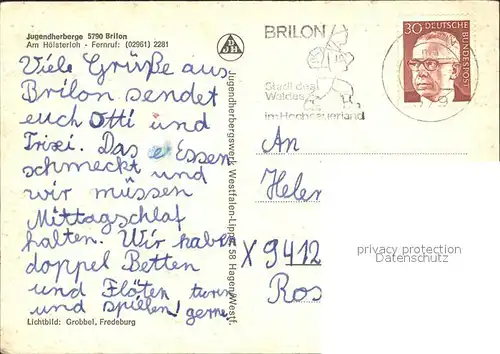 Jugendherberge 5790 Brilon
Am Hölsterloh - Fernruf: (02961) 2281
Viele Grüße aus
Brilon sendet
euch Otti und
Trixi. Das Essen
schmeckt und
wir müssen
Mittagschlaf
halten. Wir haben
doppel Betten
und Flöten
und spielen gerne!
Lichtbild: Grobbel, Fredeburg
Jugendherbergswerk Westfalen-Lippe, 58 Hagen/Westf.
BRILON
Stadt des
Waldes
im Hochsauerland
30 DEUTSCHE BUNDESPOST
An
Helen
X 9412
Ros
privacy protection
Datenschutz